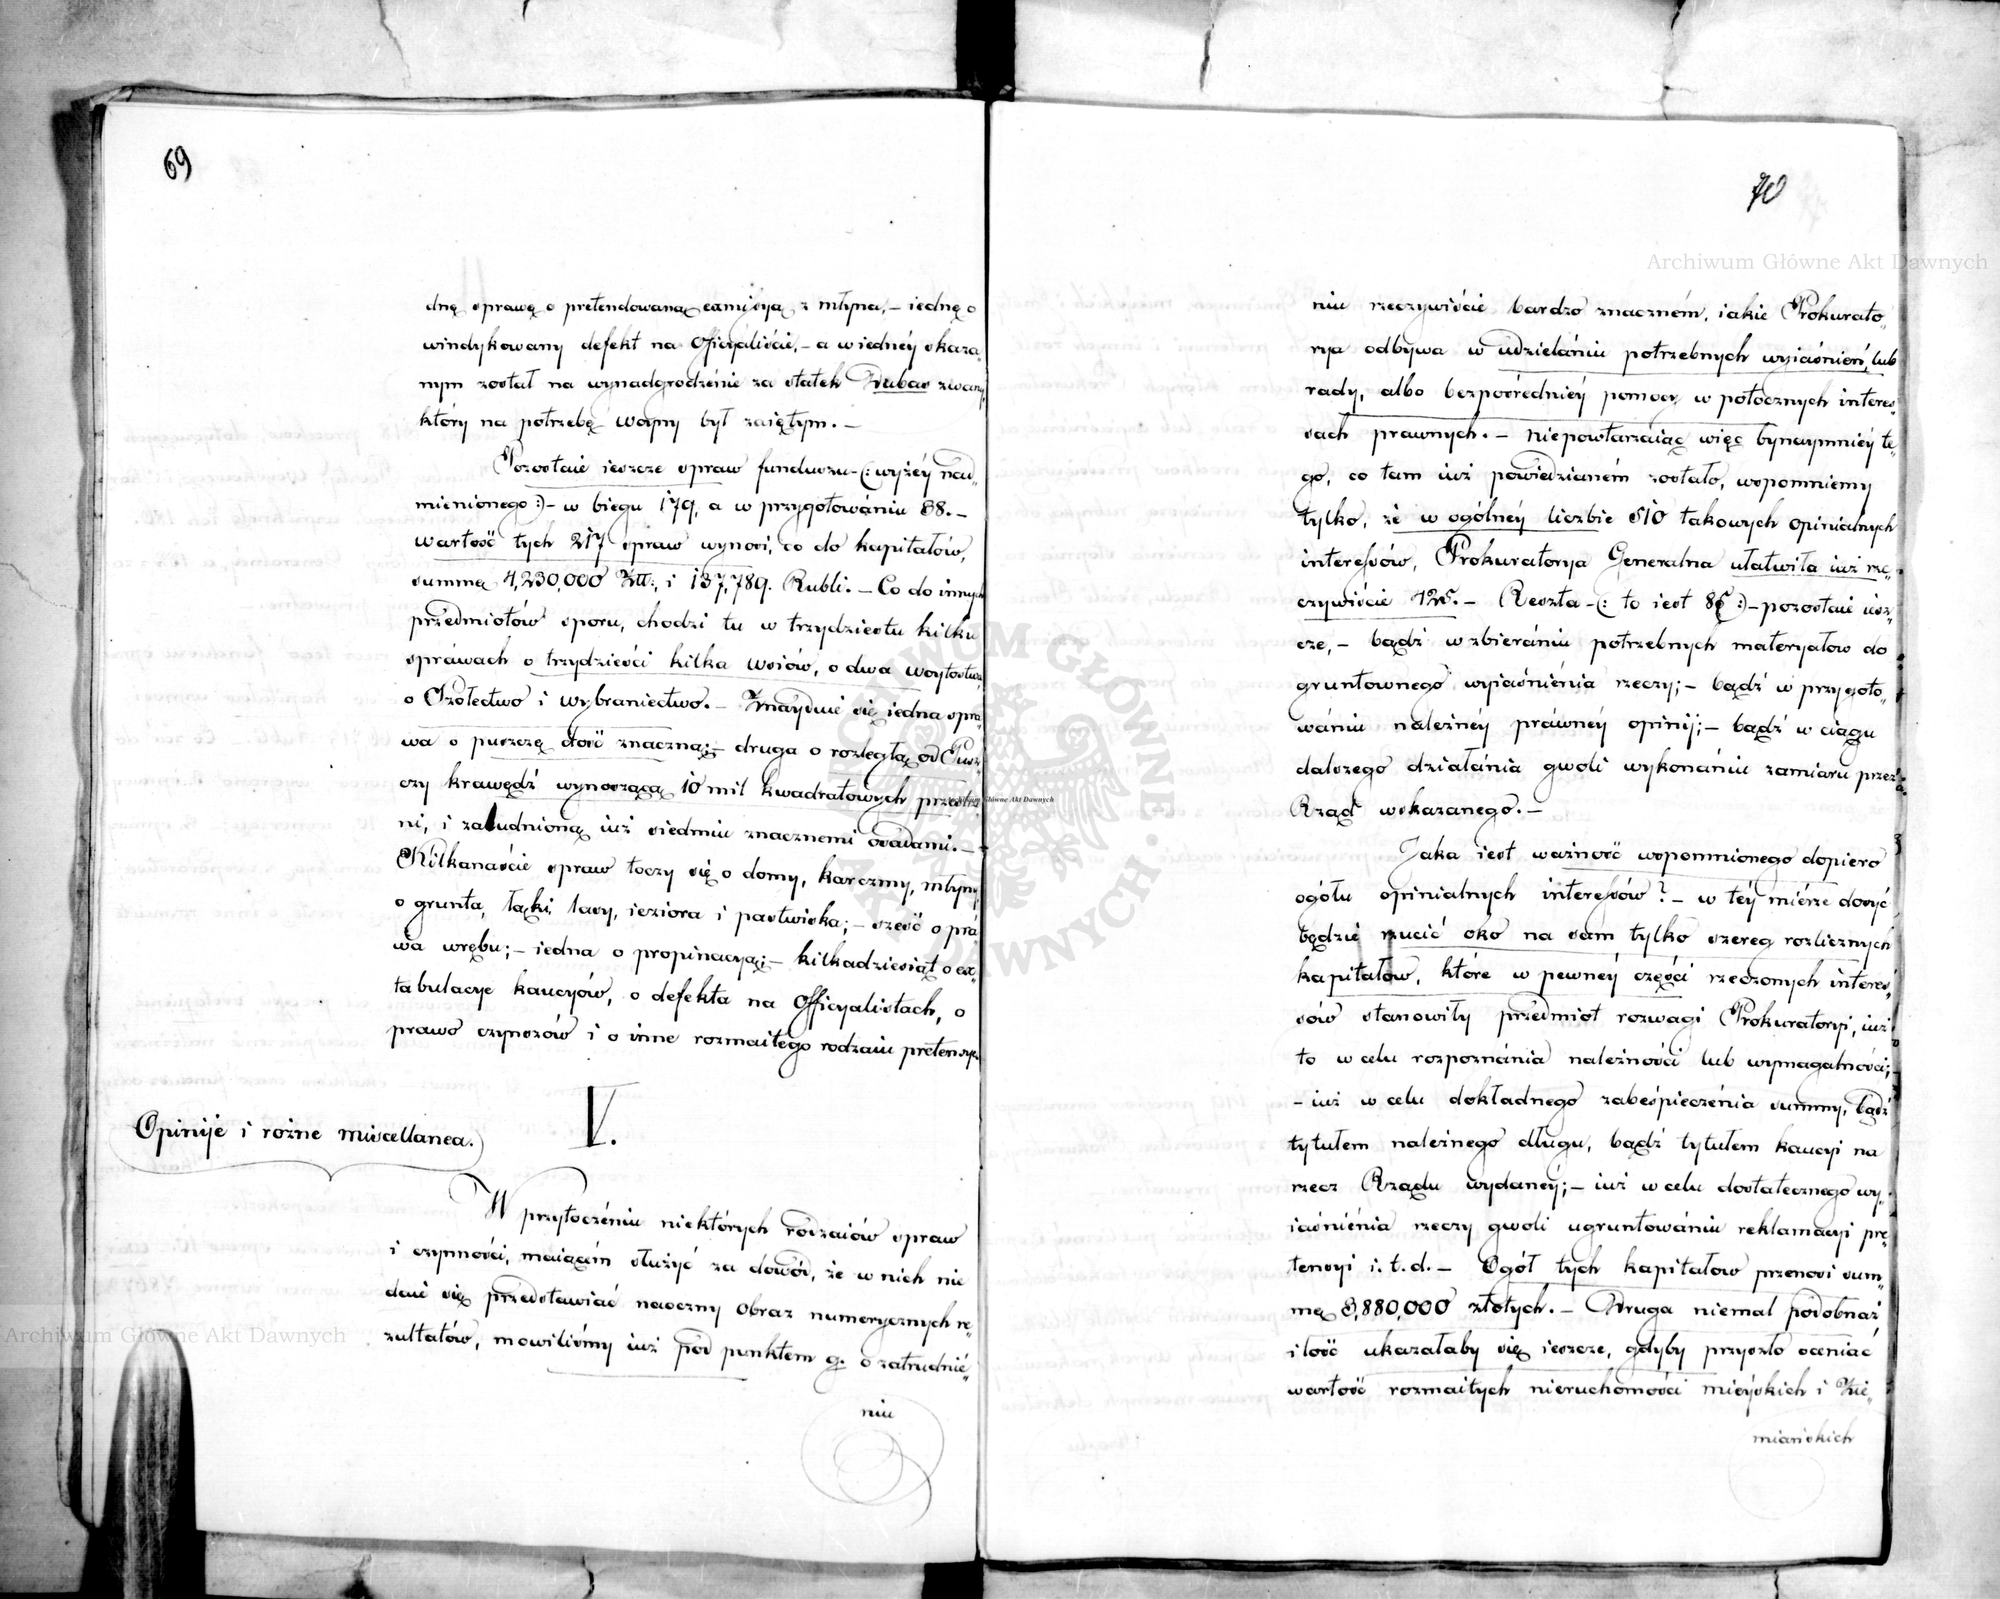 69
dnę sprawę o pretendowaną exmisyą z młyna, – iednę o
windykowany defekt na Officyaliście, – a w iednéy skaza„
nym został na wynadgrodzénie za statek Dubas zwany,
który na potrzebę woyny był zaiętym. –
Pozostaie ieszcze spraw funduszu – (: wyżéy nad„
mienionego :) – w biegu 179, a w przygotowániu 38. –
Wartość tych 217 spraw wynosi, co do kapitałów,
summę 4,230,000 Złł: i 137,789. Rubli. – Co do innych
przedmiotów sporu, chodzi tu w trzydziestu kilku
sprawach o trzydzieści kilka wsiów, o dwa woytostwa,
o Szołectwo i wybraniectwo. – Znayduie się iedna spra„
wa o puszczę dość znaczną; – druga o rozległą od Pusz„
czy krawędź wynoszącą 10 mil kwadratowych przestrze„
ni, i zaludnioną iuż siedmiu znacznemi osadami. –
Kilkanaście spraw toczy się o domy, karczmy, młyny,
o grunta, łąki, lasy, ieziora i pastwiska; – sześć o pra„
wa wrębu; – iedna o propinacyą; – kilkadziesiąt o ex„
tabulacye kaucyów, o defekta na Officyalistach, o
prawo czynszów i o inne rozmaitego rodzaiu pretensye.
V.
Opinije i rożne miscellanea.
W przytoczéniu niektórych rodzaiów spraw
i czynności, maiącém służyć za dowód, że w nich nie
daie się przedstawiać naoczny obraz numerycznych re„
zultatów, mowiliśmy iuż pod punktem g. o zatrudnié„
niu
70
niu rzeczywiście bardzo znaczném, iakie Prokurato„
rya odbywa w udzielániu potrzebnych wyiaśnień, lub
rady, albo bezpośredniéy pomocy w potocznych interes„
sach prawnych. – Niepowtarzaiąc więc bynaymniéy te„
go, co tam iuż powiedzianém zostało, wspomniemy
tylko, że w ogólnéy liczbie 510 takowych opinialnych
interessów, Prokuratorya Generalna ułatwiła iuż rze„
czywiście 425. – Reszta – (: to iest 85 :) – pozostaie iesz„
cze, – bądź w zbierániu potrzebnych materyałow do
gruntownego wyiaśniénia rzeczy; – bądź w przygoto„
wániu należnéy prawnéy opinij; – bądź w ciągu
dalszego działánia gwoli wykonániu zamiaru przez
Rząd wskazanego. –
Jaka iest ważność wspomnionego dopiero
ogółu opinialnych interessów? – w téy miérze dosyć
będzie rzucić oko na sam tylko szereg rozlicznych
kapitałow, które w pewnéy części rzeczonych interes„
sów stanowiły przedmiot rozwagi Prokuratoryi, iuż
to w celu rozpoznánia należności lub wymagalności;
– iuż w celu dokładnego zabeśpieczénia summy, bądź
tytułem należnego długu, bądź tytułem kaucyi na
rzecz Rządu wydanéy; – iuż w celu dostatecznego wy„
iaśniénia rzeczy gwoli ugruntowániu reklamacyi pre„
tensyi i. t. d. – Ogół tych kapitałow przenosi sum„
mę 3,880,000 złotych. – Druga niemal podobnaż
ilość ukazałaby się ieszcze, gdyby przyszło oceniać
wartość rozmaitych nieruchomości mieyskich i Zie„
miańskich
Archiwum Główne Akt Dawnych
Archiwum Główne Akt Dawnych
Archiwum Główne Akt Dawnych
ARCHIWUM GŁÓWNE AKT DAWNYCH